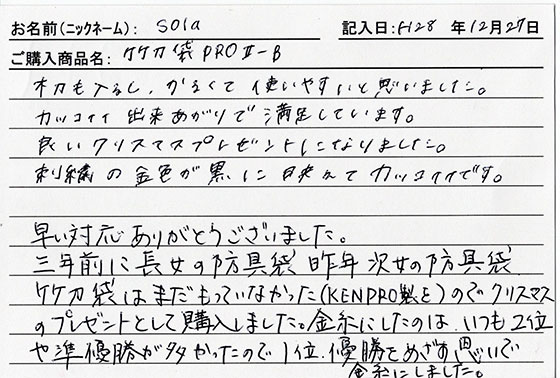 お名前(ニックネーム): sola 記入日:H28 年12月27日
ご購入商品名: 竹刀袋PROⅡ-B
木刀も入るし、かるくて使いやすいと思いました。
カッコイイ出来あがりで満足しています。
良いクリスマスプレゼントになりました。
刺繍の金色が黒に映えてカッコイイです。
早い対応ありがとうございました。
三年前に長女の防具袋 昨年次女の防具袋
竹刀袋はまだもっていなかった(KENPRO製を)のでクリスマス
のプレゼントとして購入しました。金糸にしたのは、いつも2位
や準優勝が多かったので1位、優勝をめざす思いで
金糸にしました。